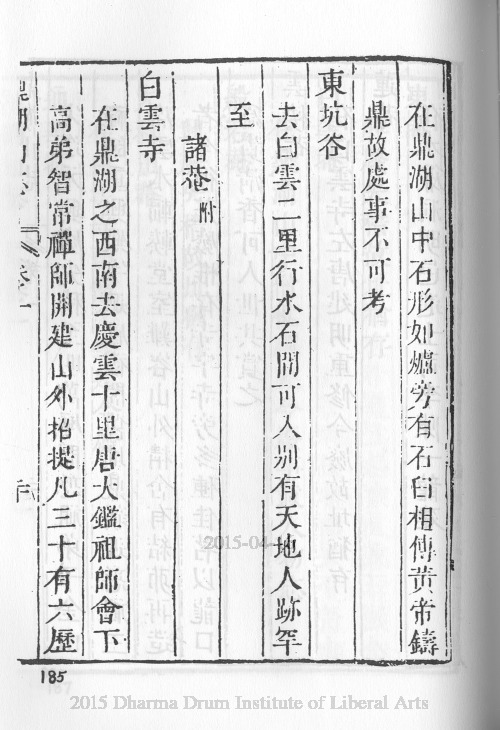 在鼎湖山中石形如爐旁有石臼相傳黃帝鑄
鼎故處事不可考
東坑谷
去白雲二里行水石間可入別有天地人跡罕
至
諸菴附
白雲寺
在鼎湖之西南去慶雲十里唐大鑑祖師會下
高弟智常禪師開建山外招提凡三十有六歷
185
2015 Dharma Drum Institute of Liberal Arts